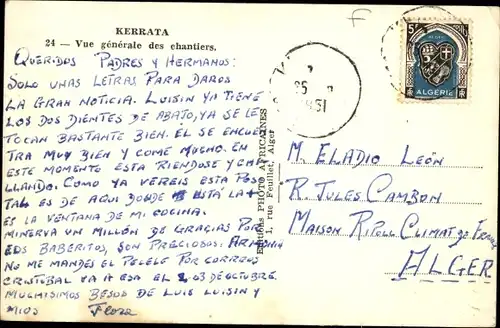 KERRATA
24 — Vue générale des chantiers.
QUERIDOS PADRES Y HERMANOS:
SOLO UNAS LETRAS PARA DAROS
LA GRAN NOTICIA. LUISIN YA TIENE
LOS DOS DIENTES DE ABAJO, YA SE LE
TOCAN BASTANTE BIEN. EL SE ENCUEN
TRA MUY BIEN Y COME MUCHO. EN
ESTE MOMENTO ESTA RIENDOSE Y CHI
LLANDO. COMO YA VEREIS ESTA POS
TAL ES DE AQUI DONDE ESTÁ LA +
ES LA VENTANA DE MI COCINA.
MINERVA UN MILLÓN DE GRACIAS POR
BABERITOS, SON PRECIOSOS. ARMONIA
NO ME MANDES EL PELELE POR CORREOS
CRISTOBAL VA A ESA EL 2 Ó 3 DE OCTUBRE.
MUCHISIMOS BESOS DE LUIS LUISIN Y
MIOS Flora
Editions PHOTO AFRICAINES
1, rue Feuillet, Alger
F
5F
ALGER
ALGERIE
M. ELADIO LEÓN
R. JULES CAMBON
MAISON RIPOLL CLIMAT DE FRANCE
ALGER